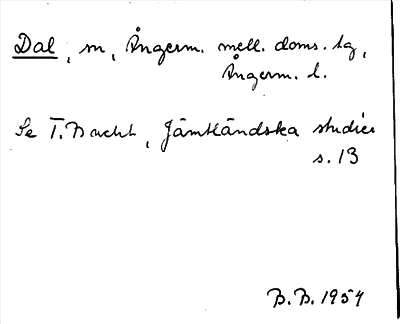 Dal, m, Ångerm. mell. doms. tg,
Ångerm. l.
Se T. Bucht, Jämtländska studier
s. 13
B.B. 1954